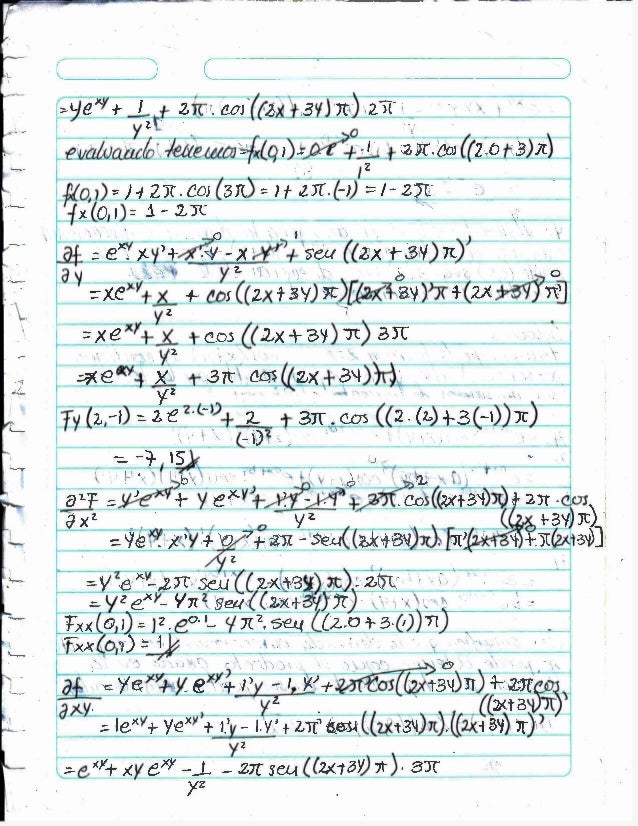 =ye^xy + 1/y² + 2π.cos((2x+3y)π)2π
evaluando tenemos=fx(0,1)=0.e^0 + 1/1² + 2π.cos((2.0+3)π)
fx(0,1)=1+2π.cos(3π)=1+2π.(-1)=1-2π
fx(0,1)=1-2π
∂f/∂y = e^xy. xy' + (x'.y - x.y')/y² + sen((2x+3y)π)'
=xe^xy + x/y² + cos((2x+3y)π)[(2x+3y)'π+(2x+3y)π']
=xe^xy + x/y² + cos((2x+3y)π)3π
=xe^xy + x/y² + 3π cos((2x+3y)π)
Fy(2,-1)=2e^2.(-1) + 2/(-1)² + 3π.cos((2.(2)+3(-1))π)
=-7,15
∂²F/∂x² = y'e^xy + ye^xy' + (1'.y-1.y')/y² + 2π.cos((2x+3y)π)+2π.cos((2x+3y)π)
=ye^xy.x'y + 0/y² + 2π-sen((2x+3y)π).[π'(2x+3y)+π(2x+3y)]
=y²e^xy-2π sen((2x+3y)π).2π
=y²e^xy-4π² sen((2x+3y)π)
Fxx(0,1)=1².e^0.1-4π².sen((2.0+3.(1))π)
Fxx(0,1)=1
∂f/∂xy = y'e^xy + y.e^xy' + (1'y-1.y')/y² + 2π'cos((2x+3y)π) + 2π cos((2x+3y)π)'
=1e^xy + ye^xy' + (1'y-1.y')/y² + 2π sen((2x+3y)π).((2x+3y)π)'
=e^xy + xye^xy - 1/y² - 2π sen((2x+3y)π).3π